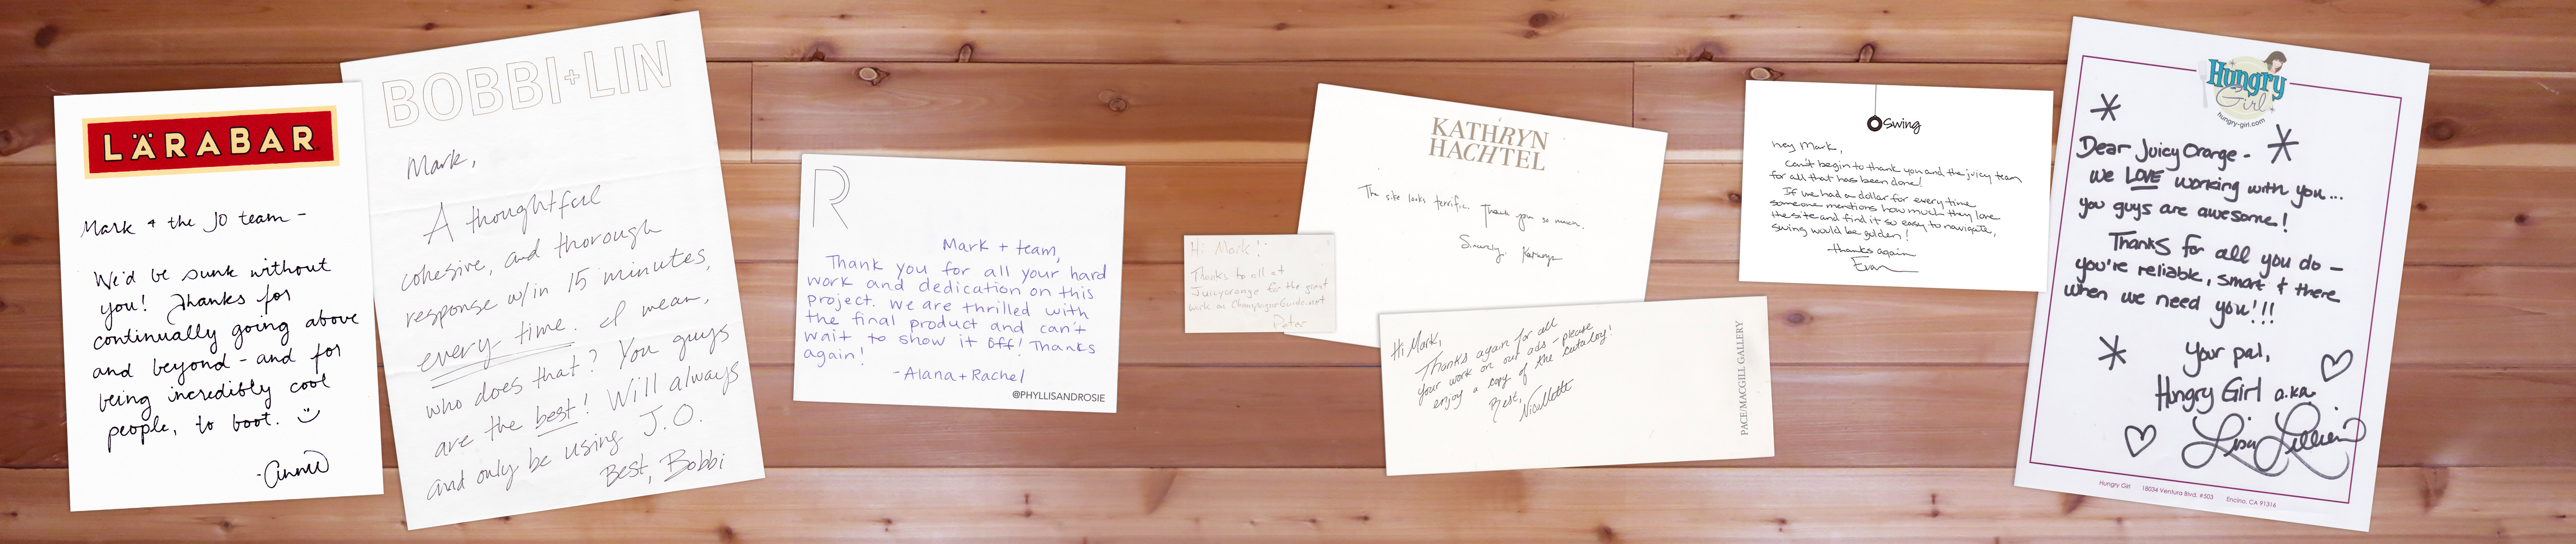 LÄRABAR
Mark + the JO team -
We'd be sunk without
you! Thanks for
continually going above
and beyond - and for
being incredibly cool
people, to boot.
-Annie
BOBBI+LIN
Mark,
A thoughtful
cohesive, and thorough
response w/in 15 minutes,
every time. I mean,
who does that? You guys
are the best! Will always
and only be using J.O.
Best, Bobbi
R
Mark + team,
Thank you for all your hard
work and dedication on this
project. We are thrilled with
the final product and can't
wait to show it off! Thanks
again!
-Alana + Rachel
@PHYLLISANDROSIE
Hi Mark!
Thanks to all at
Juicyorange for the great
work on ChampagneGuide.net
Peter
KATHRYN
HACHTEL
The site looks terrific. Thank you so much.
Sincerely, Kathryn
Hi Mark,
Thanks again for all
your work on our ads - please
enjoy a copy of the catalog!
Best,
Nicollette
PACE/MACGILL GALLERY
Swing
hey Mark,
Can't begin to thank you and the juicy team
for all that has been done!
If we had a dollar for every time
someone mentions how much they love
the site and find it so easy to navigate,
swing would be golden!
thanks again
Evan
Hungry
Girl
hungry-girl.com
Dear Juicy Orange -
we LOVE working with you...
you guys are awesome!
Thanks for all you do -
you're reliable, smart + there
when we need you!!!
Your pal,
Hungry Girl a.k.a.
Lisa Lillien
Hungry Girl 18034 Ventura Blvd. #503 Encino, CA 91316